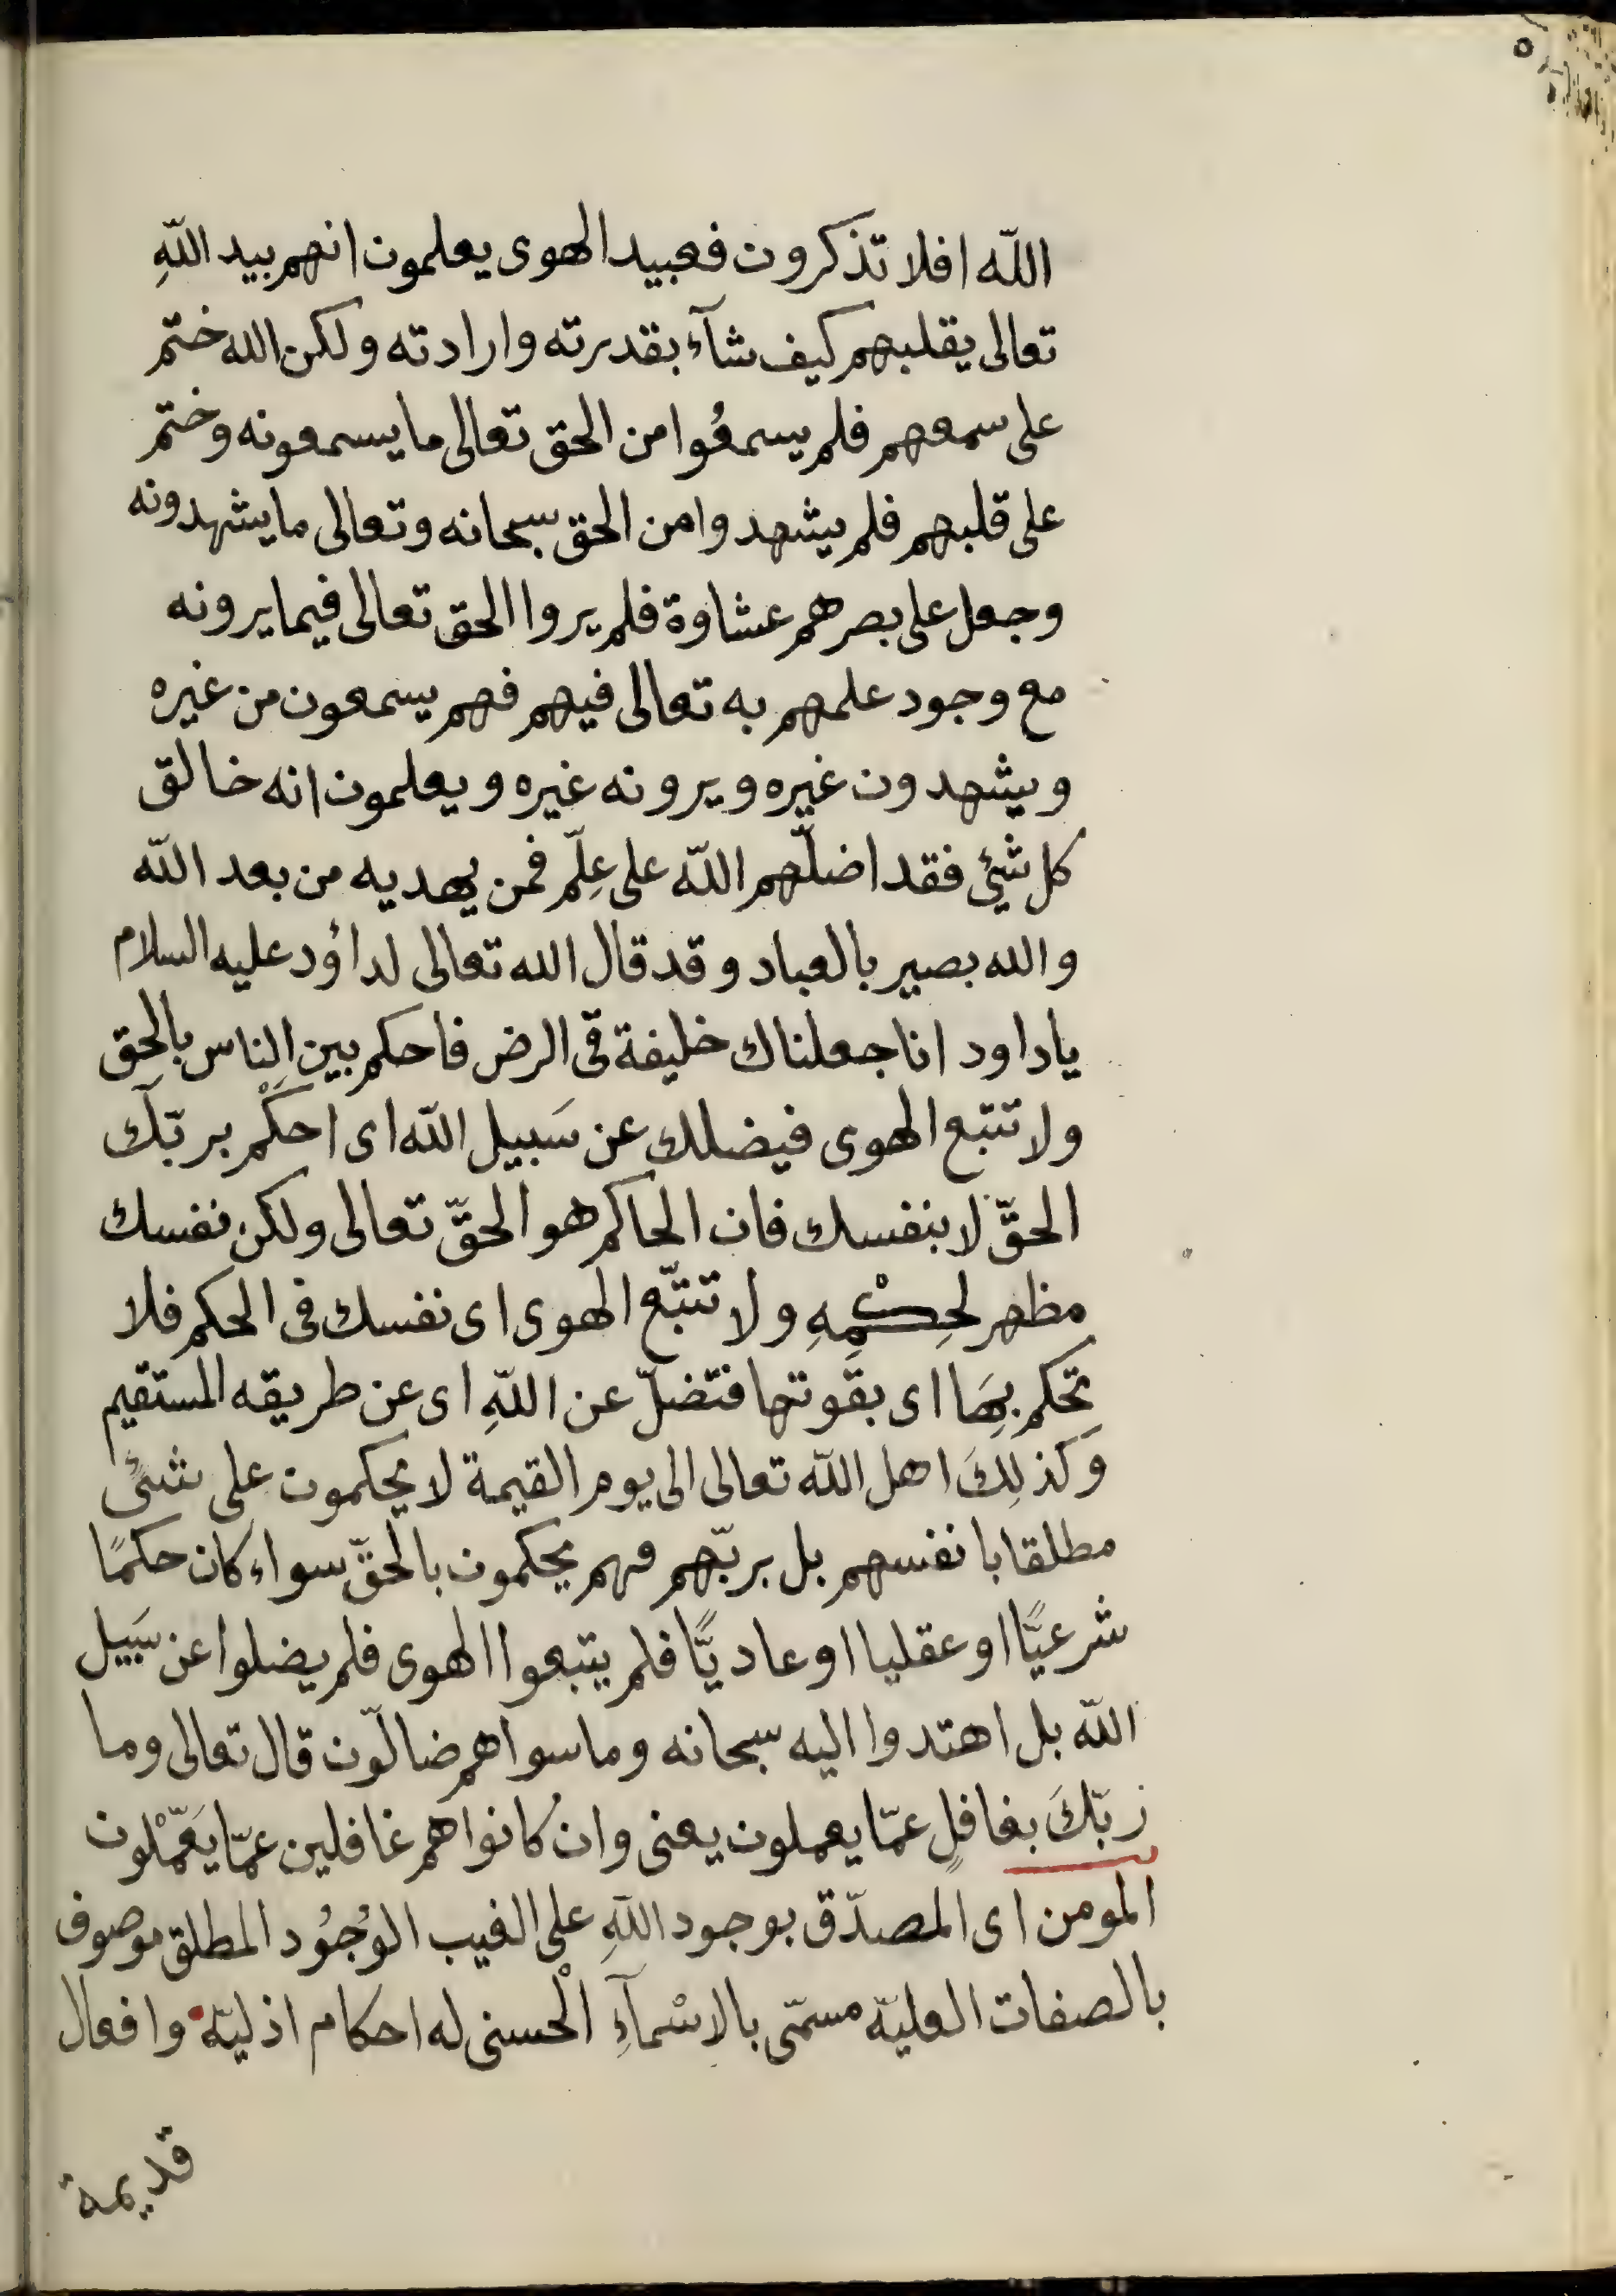 الله افلا تذكرون فعبيد الهوى يعلمون انهم بيد اللهِ
تعالى يقلبهم كيف شآء بقدرته وارادته ولكن الله ختم
على سمعهم فلم يسمعُوا من الحق تعالى ما يسمعونه وختم
على قلبهم فلم يشهدوا من الحق سبحانه وتعالى ما يشهدونه
وجعل على بصرهم عشاوة فلم يروا الحق تعالى فيما يرونه
مع وجود علمهم به تعالى فيهم فهم يسمعون من غيره
ويشهدون غيره ويرونه غيره ويعلمون انه خالق
كل شيئ فقد اضلّهم الله على عِلّم فمن يهديه من بعد الله
والله بصير بالعباد وقد قال الله تعالى لداؤد عليه السلام
ياداود انا جعلناك خليفة فى الرض فاحكم بين الناس بالحق
ولا تتبع الهوى فيضلك عن سَبيل الله اى احكْم بربّك
الحقّ لا بنفسك فان الحاكم هو الحقّ تعالى ولكن نفسك
مظهر لحِكْمِهِ ولا تتبّع الهوى اى نفسك فى الحكم فلا
تحكم بِهَا اى بقوتها فتضلّ عن اللهِ اى عن طريقه المستقيم
وَكذلِكَ اهل الله تعالى الى يوم القيمة لا يحكمون على شئٍ
مطلقا بانفسهم بل بربّهم فهم يحكمون بالحقّ سواء كان حكمًا
شرعيًّا او عقليا او عاديًّا فلم يتبعوا الهوى فلم يضلوا عن سَبيل
الله بل اهتدوا اليه سبحانه وما سواهم ضالّون قال تعالى وما
ربّكَ بغافلٍ عمّا يعملون يعنى وان كانوا هم غافلين عمّا يَعْمّلون
المومن اى المصدّق بوجود اللهِ على الغيب الوُجُود المطلق موصوف
بالصفات العليّة مسمّى بالاسْمآءِ الْحسنى له احكام اذليّة وافعال
قديمة